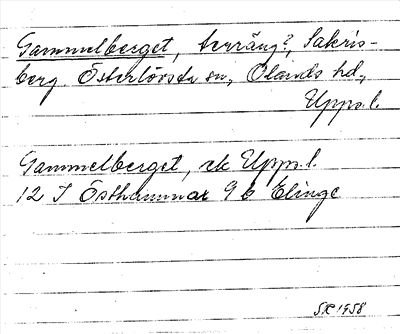 Gammelberget, terräng?, Sakris-
berg. Österlövsta sn, Olands hd,
Upps.l.
Gammelberget, ek Upps.l.
12 I Östhammar 9 b Elinge
SK 1958